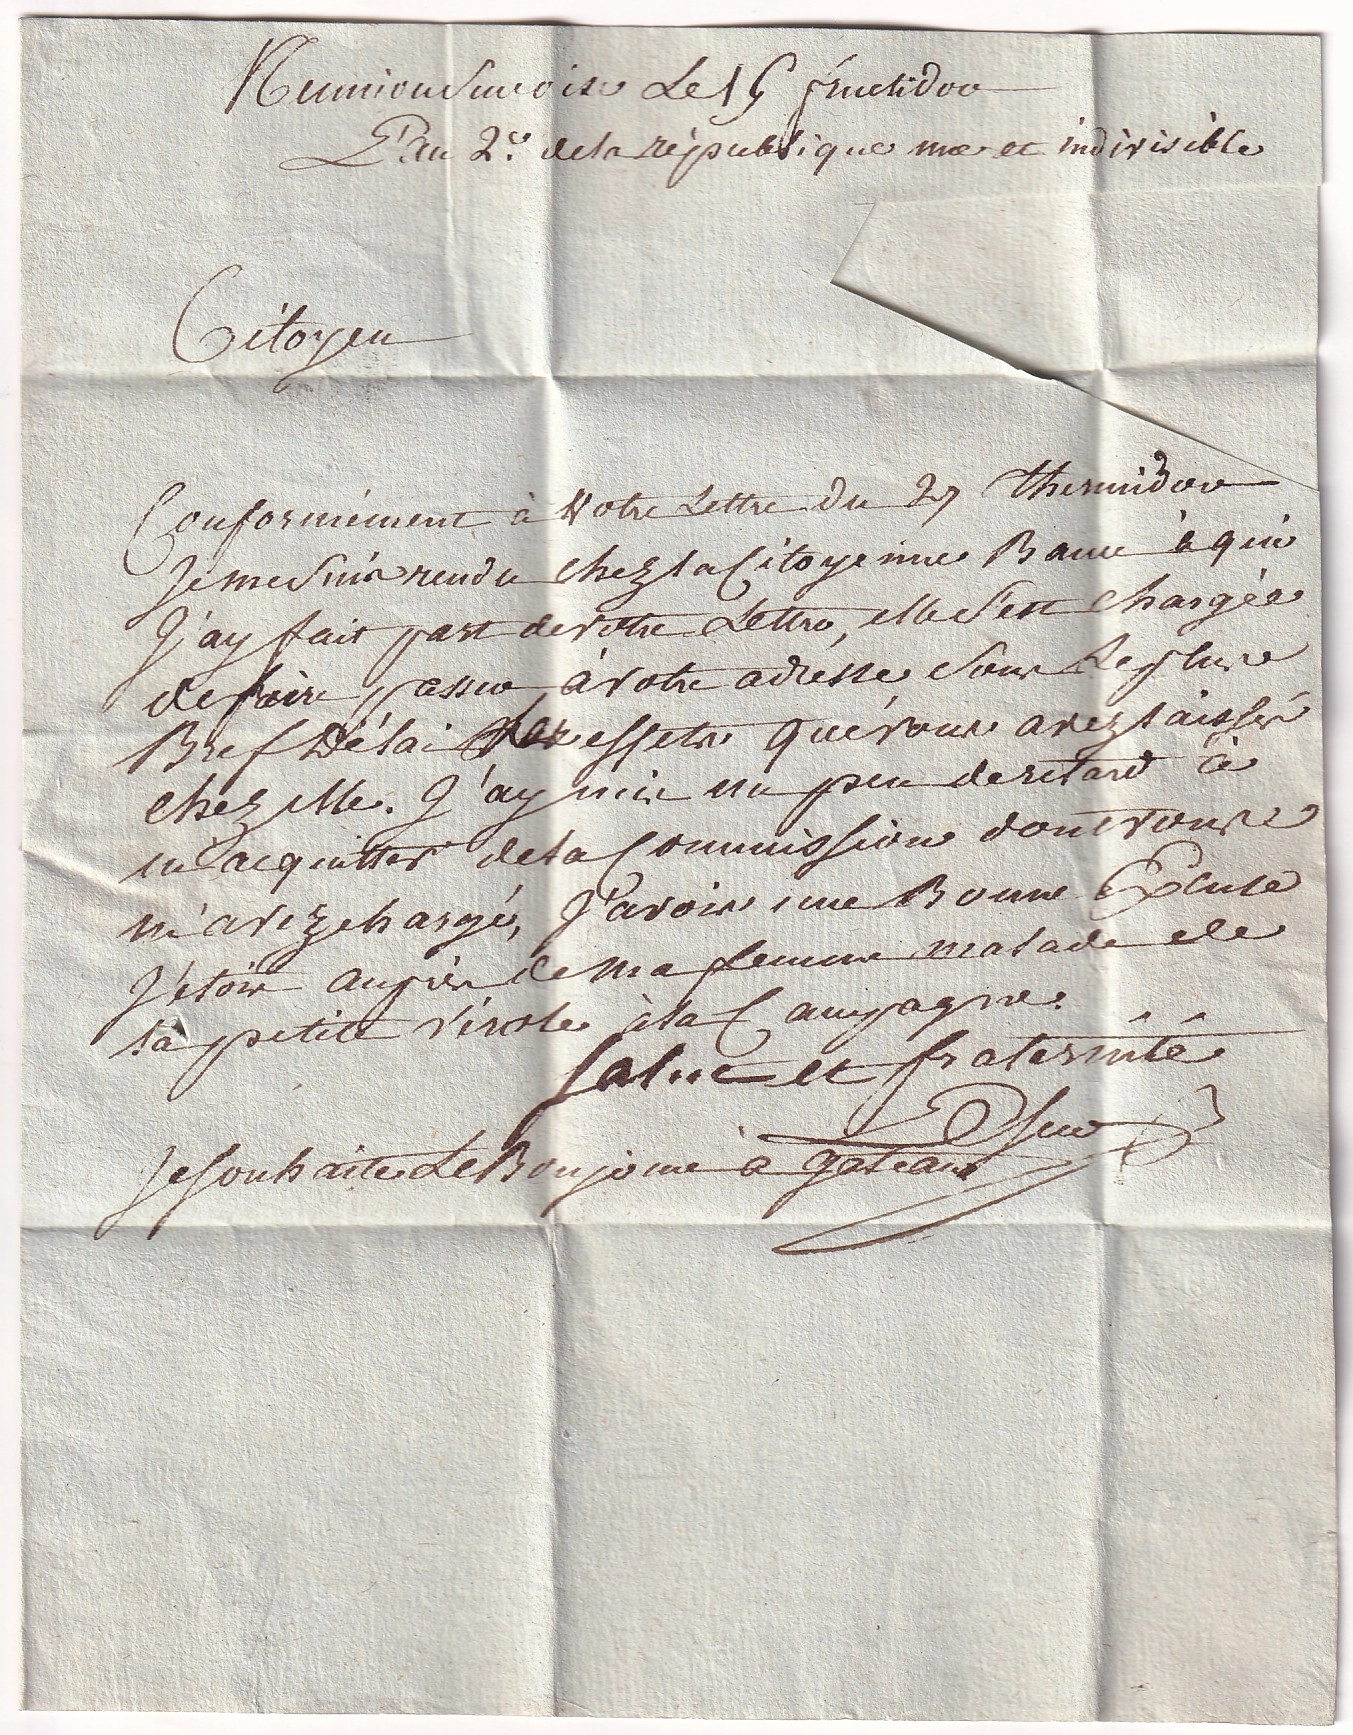 Reunion sur oise Le 15 fructidor
L'an 2e. de la republique une et indivisible
Citoyen
Conformément à Votre Lettre du 27 thermidor
Je me suis rendu chez la Citoyenne à qui
J'ay fait part de votre Lettre, elle s'est chargée
de faire passer à votre adresse sous Le plus
Bref Délai les effets que vous avez laissés
chez elle. J'ay mis un peu de retard à
m'acquitter de la Commission dont vous
m'avez chargé, J'avois une Bonne Excuse
J'étois auprès de ma femme malade de
la petite vérole à la Campagne.
Salut et fraternité
Je souhaite Le Bonjour à gateau